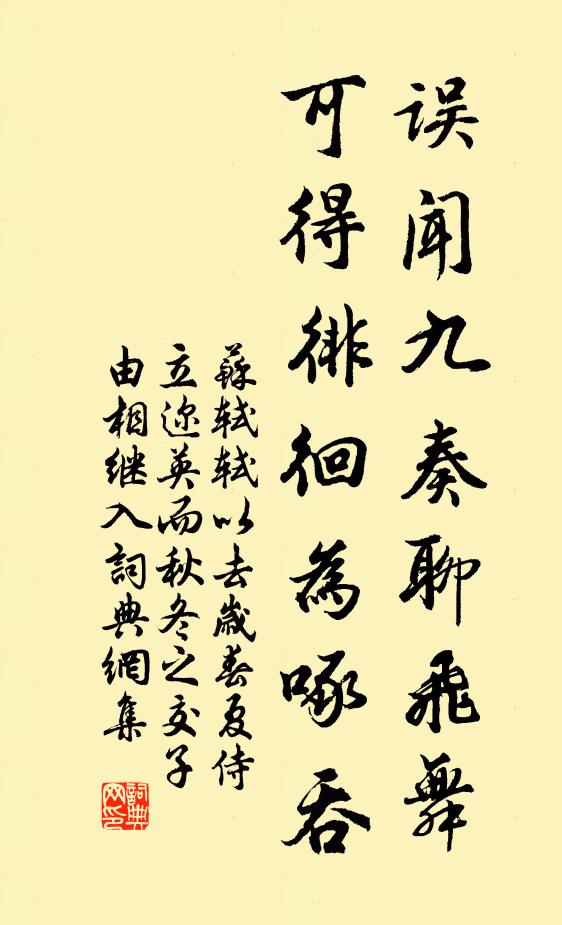 误闻九奏聊飛舞
可得徘徊為啄吞
蘇轼轼以去歲春夏侍
立迩英而秋冬之交子
由相继入詞典網集
詞典
网印